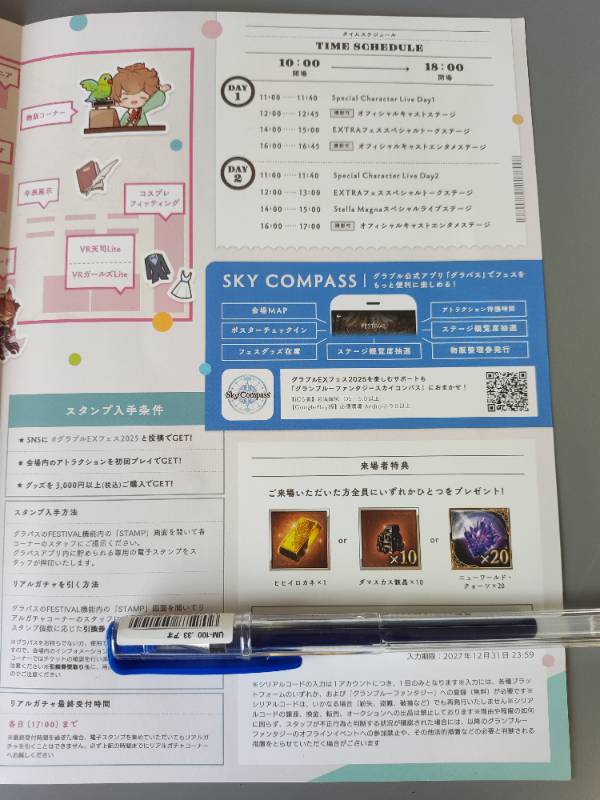 物販コーナー
年表展示
コスプレ
フィッティング
VR天司Lite
VRガールズLite
タイムスケジュール
TIME SCHEDULE
10:00
開場
18:00
閉場
DAY
1
11:00 ····· 11:40 Special Character Live Day1
12:00 ····· 12:45 撮影可 オフィシャルキャストステージ
14:00 ····· 15:00 EXTRAフェススペシャルトークステージ
16:00 ····· 16:45 撮影可 オフィシャルキャストエンタメステージ
DAY
2
11:00 ····· 11:40 Special Character Live Day2
12:00 ····· 13:00 EXTRAフェススペシャルトークステージ
14:00 ····· 15:00 Stella Magnaスペシャルライブステージ
16:00 ····· 17:00 撮影可 オフィシャルキャストエンタメステージ
SKY COMPASS
グラブル公式アプリ「グラパス」でフェスを
もっと便利に楽しめる!
会場MAP
ポスターチェックイン
フェスグッズ在庫
FESTIVAL
ステージ観覧席抽選
アトラクション待機時間
ステージ観覧席抽選
物販整理券発行
Sky Compass
グラブルEXフェス2025を楽しむサポートも
「グランブルーファンタジースカイコンパス」におまかせ!
スタンプ入手条件
★ SNSに #グラブルEXフェス2025 と投稿でGET!
★ 会場内のアトラクションを初回プレイでGET!
★ グッズを3,000円以上(税込)ご購入でGET!
スタンプ入手方法
グラパスのFESTIVAL機能内の「STAMP」画面を開いて各
コーナーのスタッフにご提示ください。
グラパスアプリ内に貯められる専用の電子スタンプをス
タッフが押印いたします。
リアルガチャを引く方法
グラパスのFESTIVAL機能内の「STAMP」画面を開いてリ
アルガチャコーナーのスタッフに
スタンプ個数に応じた引換券
リアルガチャ最終受付時間
各日【17:00】まで
※最終受付時間を過ぎた場合、電子スタンプを集めていただいてもリアルガ
チャを引くことはできません。必ず上記の時間までにリアルガチャコーナー
へお越しください
来場者特典
ご来場いただいた方全員にいずれかひとつをプレゼント!
or
×10
or
×20
ヒヒイロカネ×1
ダマスカス骸晶×10
ニューワールド・
クォーツ×20
UM-100 .33 アオ
入力期限:2027年12月31日 23:59
※シリアルコードの入力は1アカウントにつき、1回のみとなります※入力には、各種プラッ
トフォームのいずれか、および「グランブルーファンタジー」への登録(無料)が必要です※
シリアルコードは、いかなる場合(紛失、盗難、破損など)でも再発行いたしません※シリ
アルコードの譲渡、換金、転売、オークションへの出品は禁止しております※理由や経緯の如何
に関らず、スタッフが不正行為と判断する状況が確認された場合には、以降のグランブルー
ファンタジーのオフラインイベントへの参加禁止や、その他法的措置などの必要と判断され
る措置をとらせていただく場合がございます